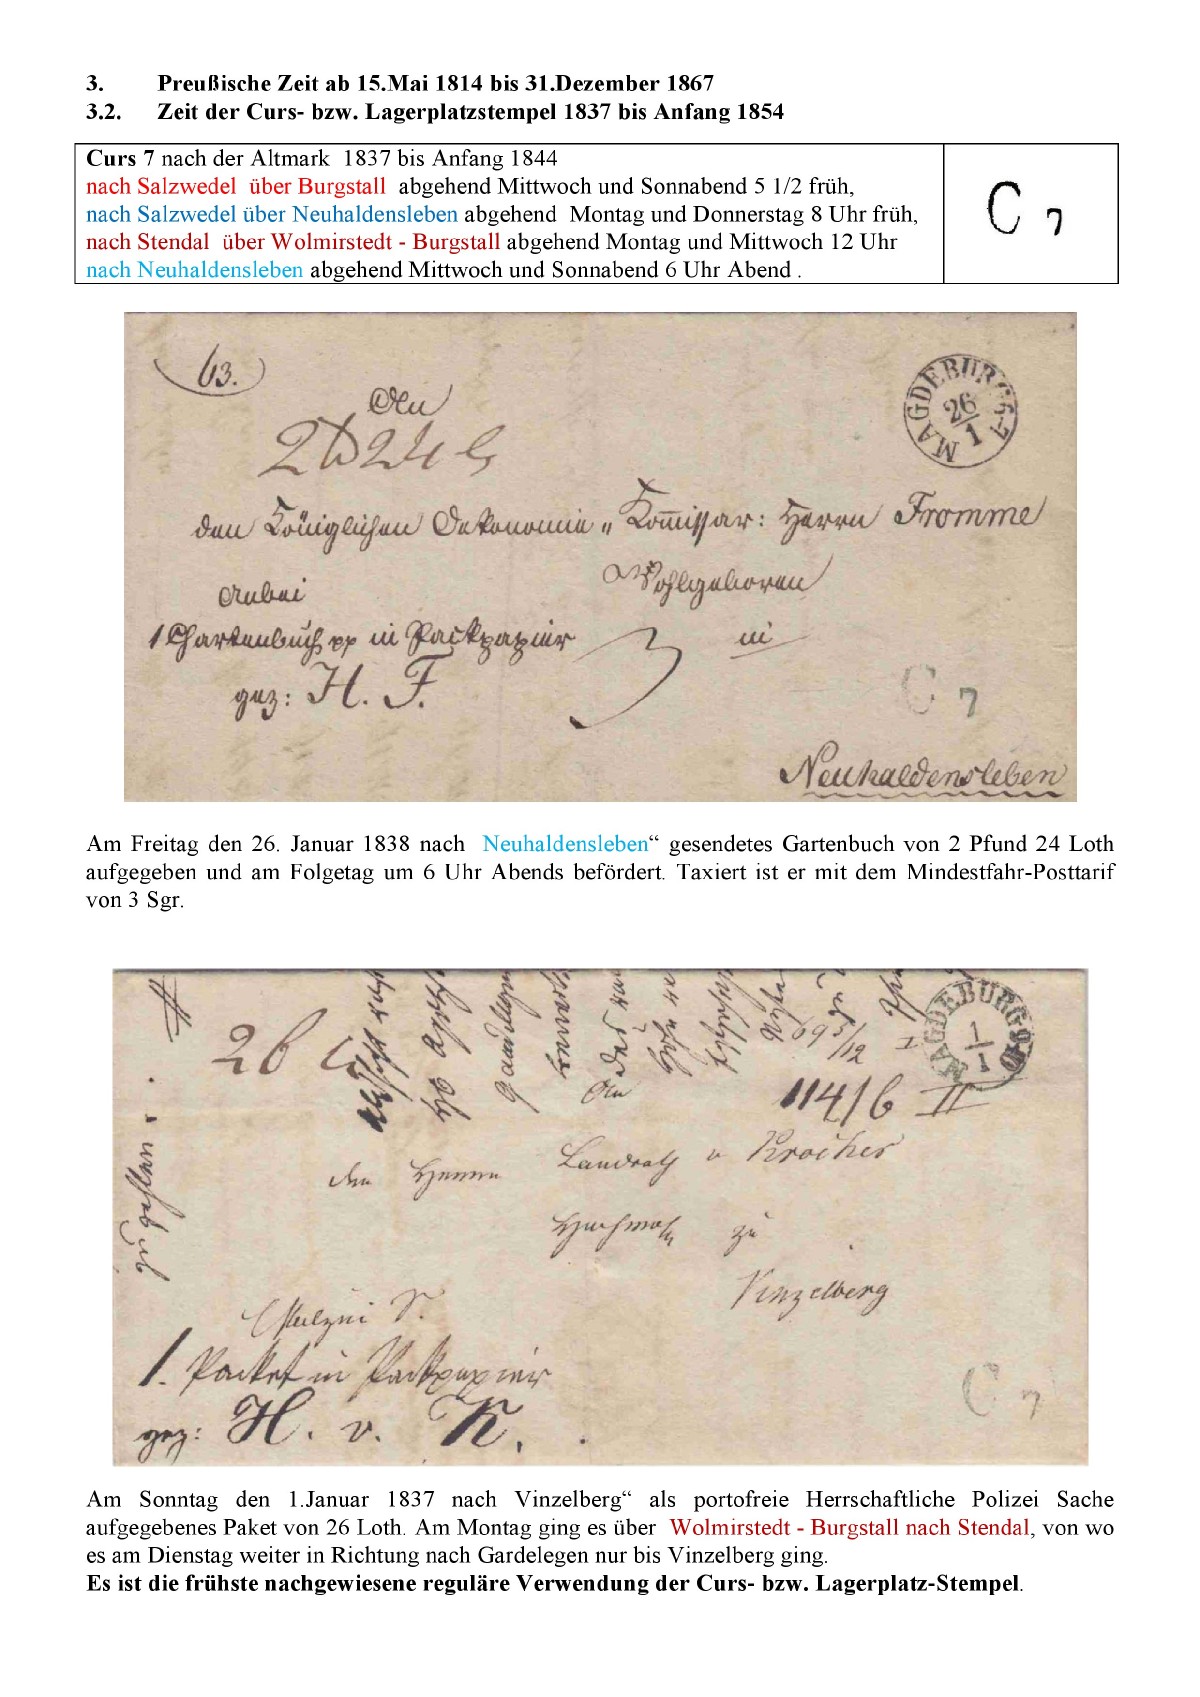 3. Preußische Zeit ab 15.Mai 1814 bis 31.Dezember 1867
3.2. Zeit der Curs- bzw. Lagerplatzstempel 1837 bis Anfang 1854
Curs 7 nach der Altmark 1837 bis Anfang 1844
nach Salzwedel über Burgstall abgehend Mittwoch und Sonnabend 5 1/2 früh,
nach Salzwedel über Neuhaldensleben abgehend Montag und Donnerstag 8 Uhr früh,
nach Stendal über Wolmirstedt - Burgstall abgehend Montag und Mittwoch 12 Uhr
nach Neuhaldensleben abgehend Mittwoch und Sonnabend 6 Uhr Abend .
C 7
63.
MAGDEBURG 6-7
26/1
An
2 24
den Königlichen Oekonomie „ Kommissar: Herrn Fromme
Wohlgeboren
Anbei
1 Chartenbuch pp in Packpapier
in
3
gez: H. F.
C 7
Neuhaldensleben
Am Freitag den 26. Januar 1838 nach Neuhaldensleben“ gesendetes Gartenbuch von 2 Pfund 24 Loth
aufgegeben und am Folgetag um 6 Uhr Abends befördert. Taxiert ist er mit dem Mindestfahr-Posttarif
von 3 Sgr.
MAGDEBURG 9-10
1/1
26
An
114/6 II
den Herrn Landrath v Krocher
zu
Vinzelberg
1. Packet in Packpapier
gez: H. v. K.
C 7
Am Sonntag den 1.Januar 1837 nach Vinzelberg“ als portofreie Herrschaftliche Polizei Sache
aufgegebenes Paket von 26 Loth. Am Montag ging es über Wolmirstedt - Burgstall nach Stendal, von wo
es am Dienstag weiter in Richtung nach Gardelegen nur bis Vinzelberg ging.
Es ist die frühste nachgewiesene reguläre Verwendung der Curs- bzw. Lagerplatz-Stempel.